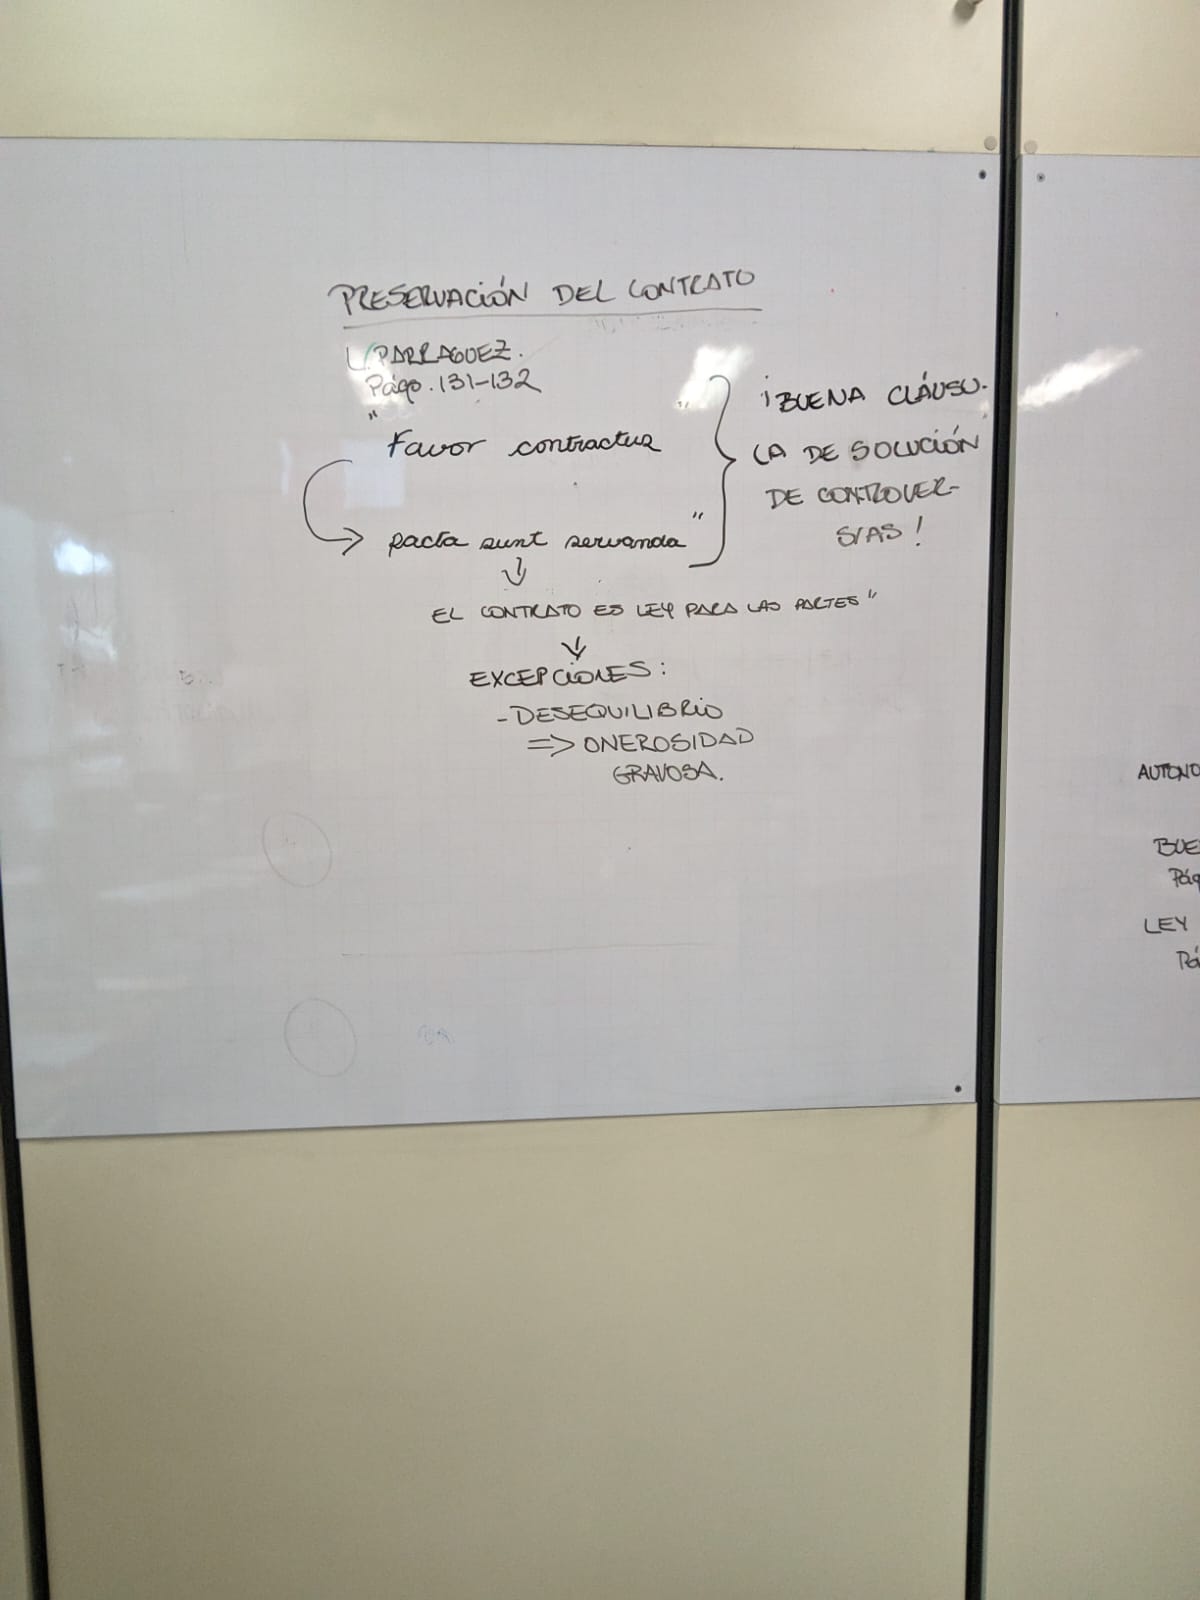 PRESERVACIÓN DEL CONTRATO
L. PARRAGUEZ.
Págs. 131-132
" Favor contractus "
pacta sunt servanda "
EL CONTRATO ES LEY PARA LAS PARTES "
EXCEPCIONES:
- DESEQUILIBRIO
=> ONEROSIDAD
GRAVOSA.
¡BUENA CLÁUSU-
LA DE SOLUCIÓN
DE CONTROVER-
SIAS!
AUTONO
BUE
Pág
LEY
Pá